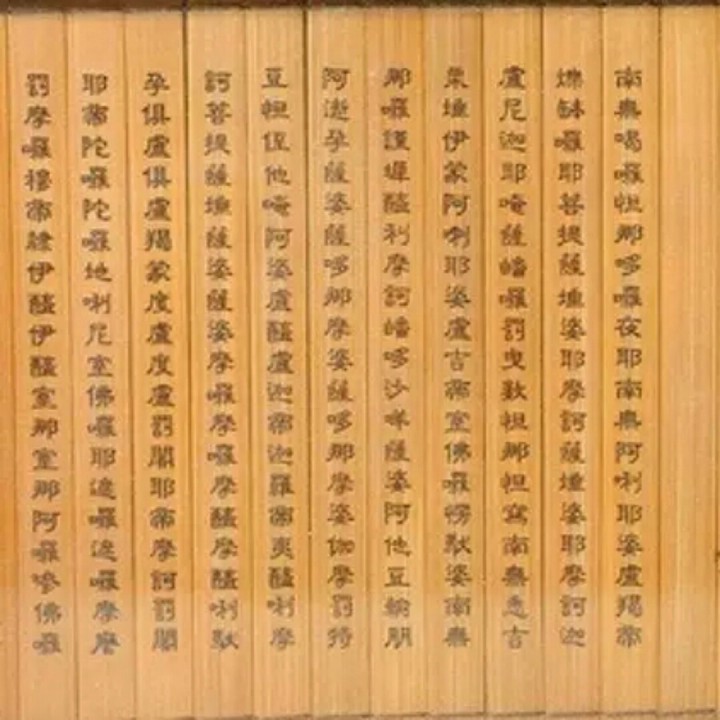 南無喝囉怛那哆囉夜耶南無阿唎耶婆盧羯帝
爍缽囉耶菩提薩埵婆耶摩訶薩埵婆耶摩訶迦
盧尼迦耶唵薩皤囉罰曳數怛那怛寫南無悉吉
栗埵伊蒙阿唎耶婆盧吉帝室佛囉愣馱婆南無
那囉謹墀醯利摩訶皤哆沙咩薩婆阿他豆輸朋
阿逝孕薩婆薩哆那摩婆薩哆那摩婆伽摩罰特
豆怛侄他唵阿婆盧醯盧迦帝迦羅帝夷醯唎摩
訶菩提薩埵薩婆薩婆摩囉摩囉摩醯摩醯唎馱
孕俱盧俱盧羯蒙度盧度盧罰闍耶帝摩訶罰闍
耶帝陀囉陀囉地唎尼室佛囉耶遮囉遮囉摩麼
罰摩囉穆帝隸伊醯伊醯室那室那阿囉嘇佛囉